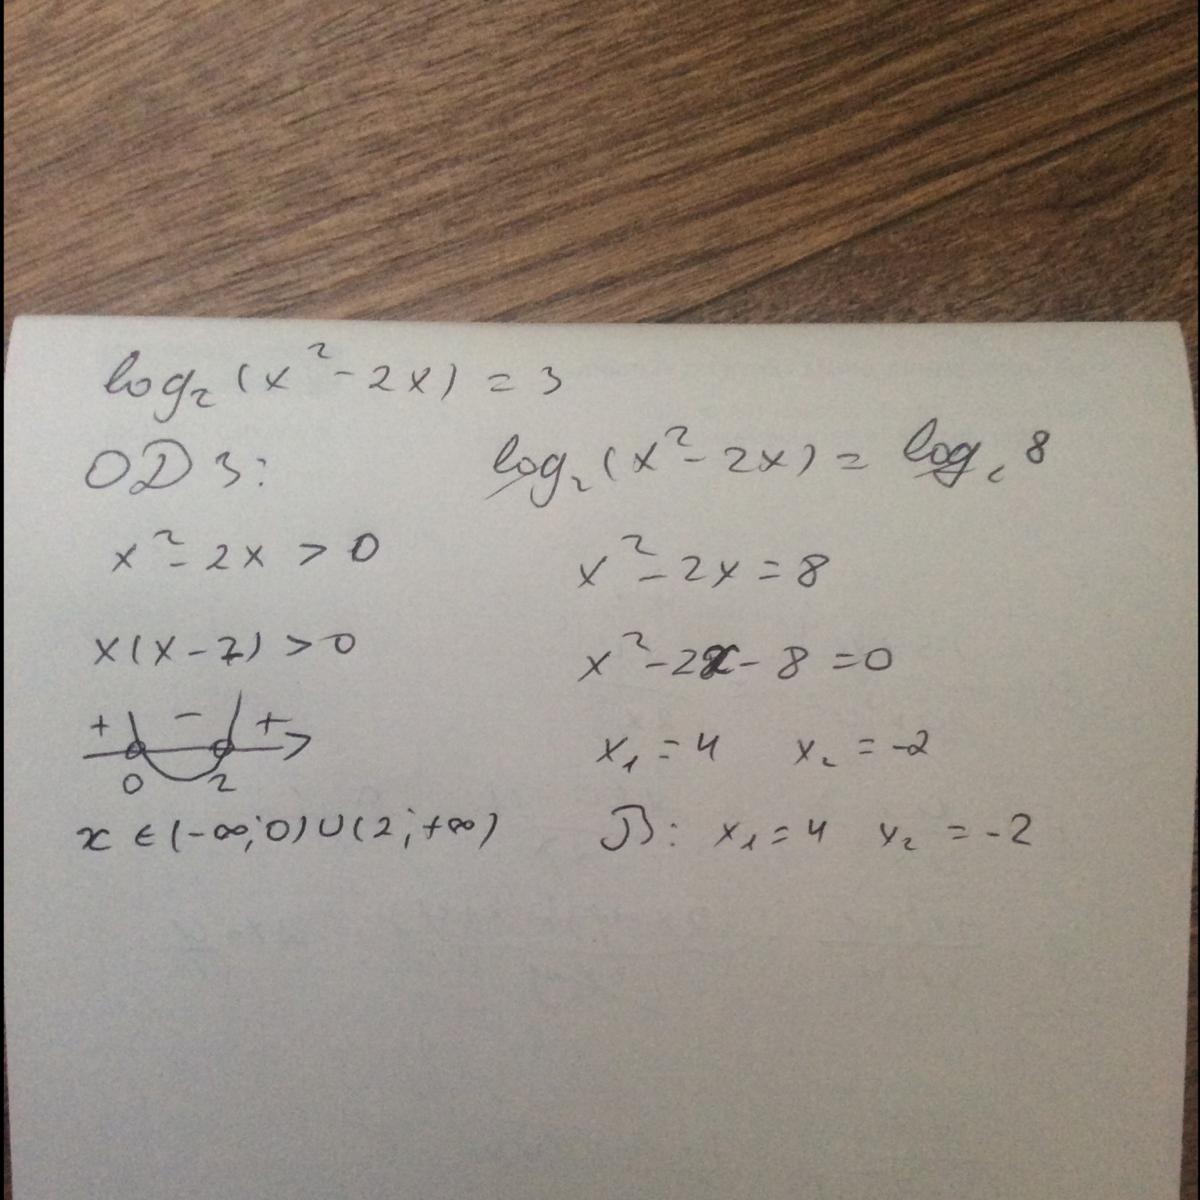 log₂(x²-2x) = 3
ОДЗ:
x²-2x > 0
x(x-2) > 0
+ - +
0 2
x ∈ (-∞;0)∪(2;+∞)
log₂(x²-2x) = log₂ 8
x²-2x = 8
x²-2x-8 = 0
x₁ = 4 x₂ = -2
В: x₁ = 4 x₂ = -2